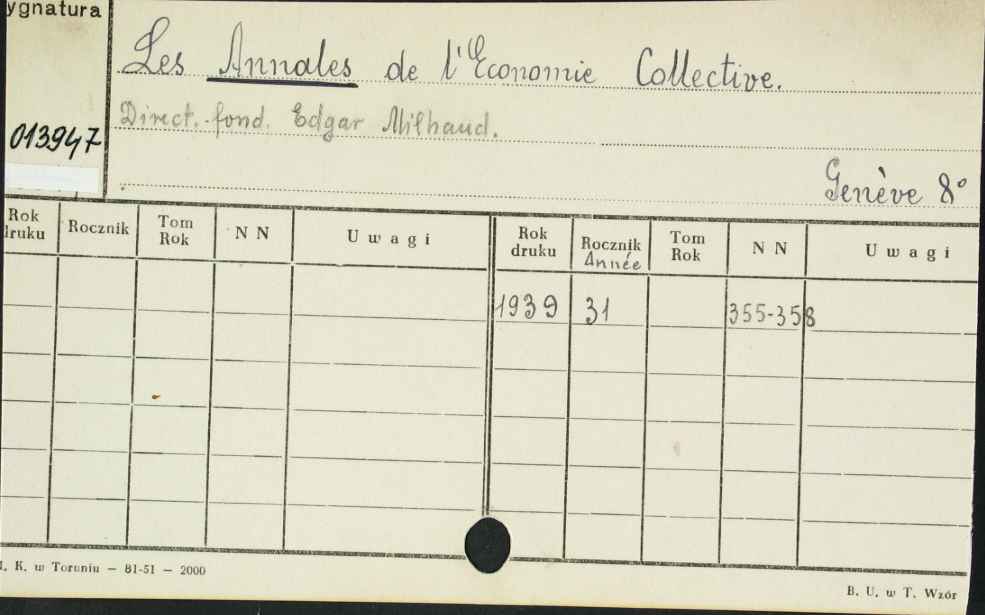 ygnatura
Les Annales de l'Economie Collective.
Direct.-fond. Edgar Milhaud.
013947
Genève 8°
Rok druku Rocznik Tom Rok N N Uwagi Rok druku Rocznik Année Tom Rok N N Uwagi
1939 31 355-358
K. w Toruniu — 81-51 — 2000
B. U. w T. Wzór